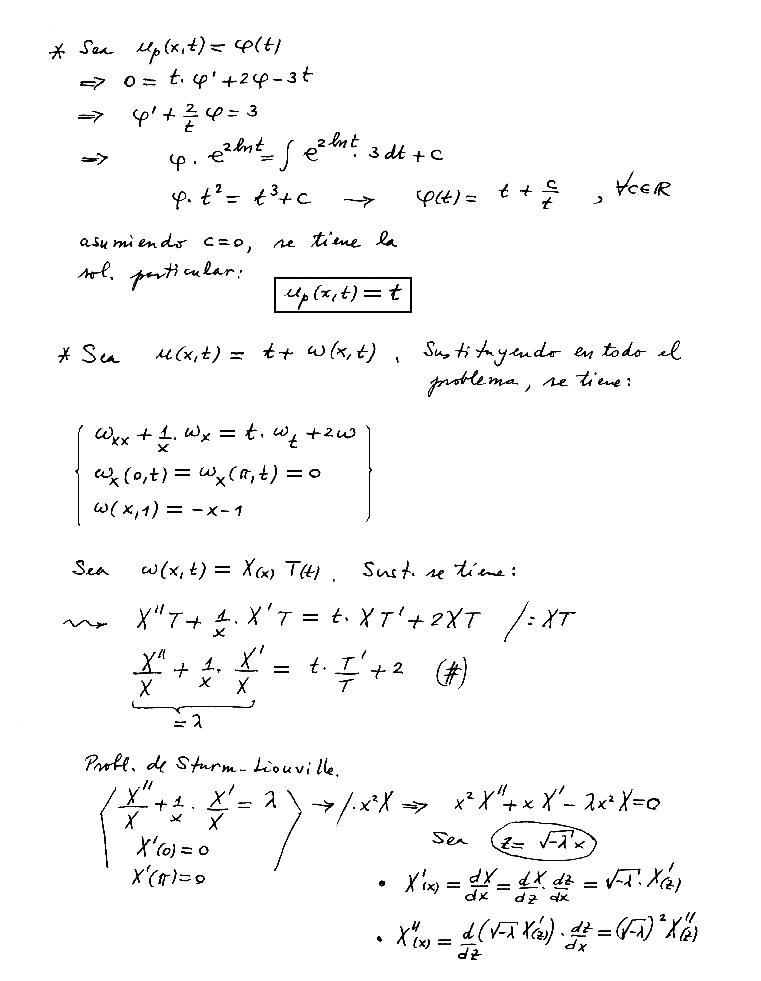 * Sea u_p(x,t) = φ(t)
⇒ 0 = t·φ' + 2φ - 3t
⇒ φ' + 2/t φ = 3
⇒ φ · e^{2lnt} = ∫ e^{2lnt} · 3dt + c
φ · t² = t³ + c → φ(t) = t + c/t , ∀c∈ℝ
asumiendo c=0, se tiene la
sol. particular:
u_p(x,t) = t
* Sea u(x,t) = t + ω(x,t). Sustituyendo en todo el
problema, se tiene:
ω_xx + 1/x · ω_x = t · ω_t + 2ω
ω_x(0,t) = ω_x(π,t) = 0
ω(x,1) = -x-1
Sea ω(x,t) = X(x) T(t). Sust. se tiene:
⇝ X''T + 1/x · X'T = t · XT' + 2XT /: XT
X''/X + 1/x · X'/X = t · T'/T + 2 (#)
= λ
Probl. de Sturm-Liouville.
X''/X + 1/x · X'/X = λ → /·x²X ⇒ x²X'' + xX' - λx²X = 0
X'(0) = 0 Sea z = √-λ x
X'(π) = 0
• X'(x) = dX/dx = dX/dz · dz/dx = √-λ · X'(z)
• X''(x) = d/dz (√-λ X'(z)) · dz/dx = (√-λ)² X''(z)